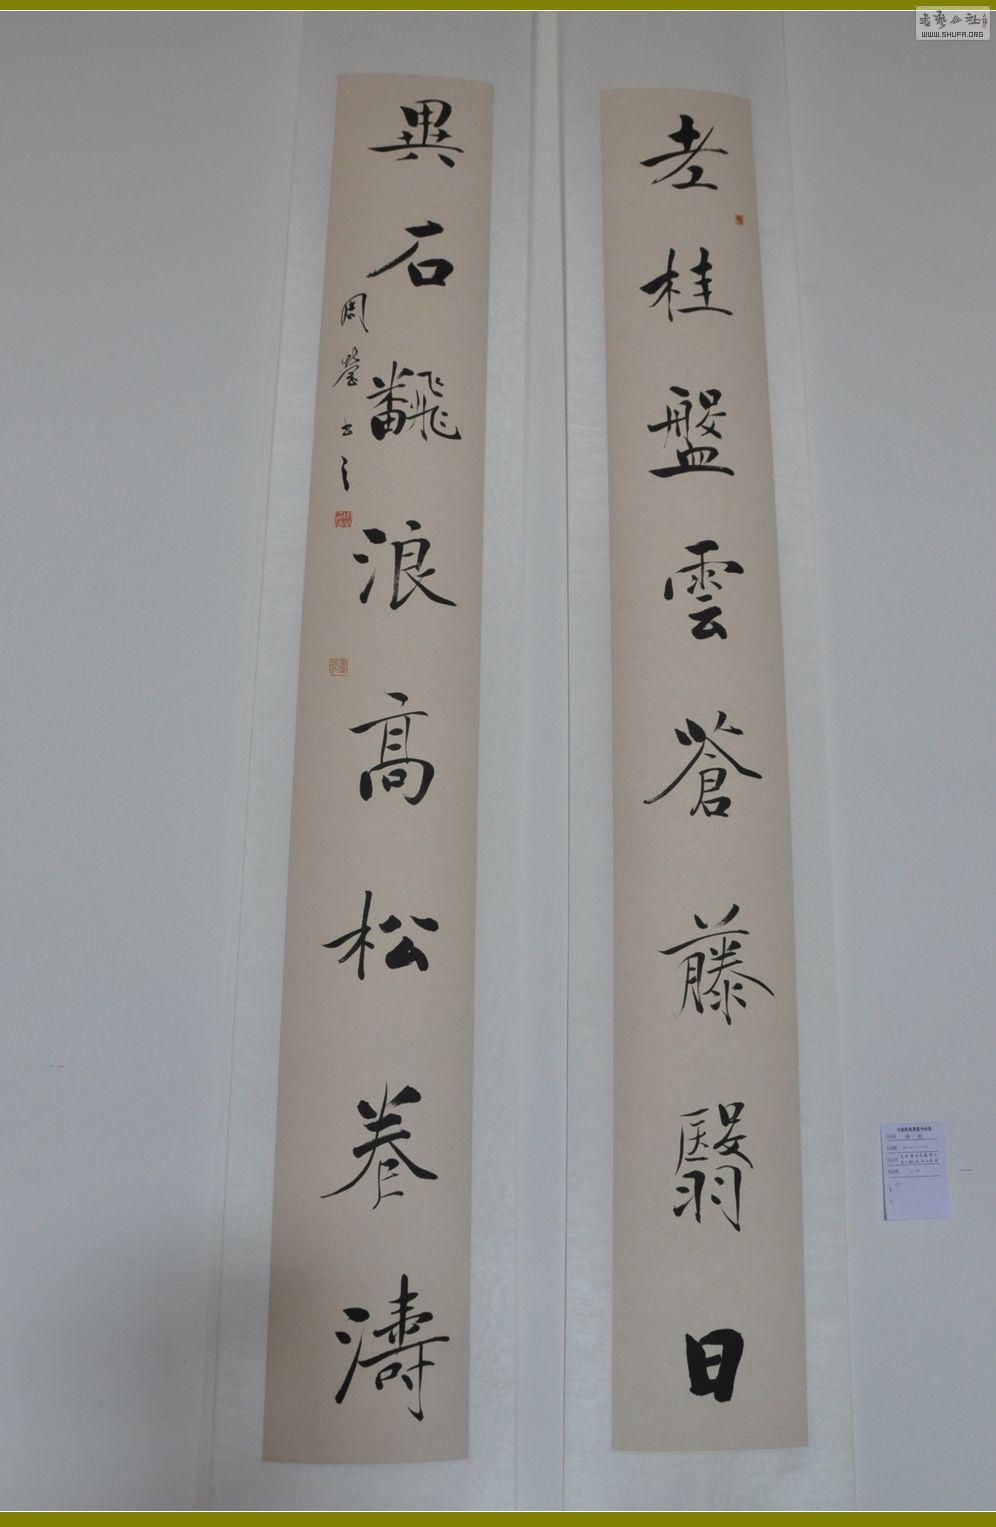 老桂盤雲蒼藤翳日
異石飜浪高松卷濤
周瑩書之
書藝公社
WWW.SHUFA.ORG